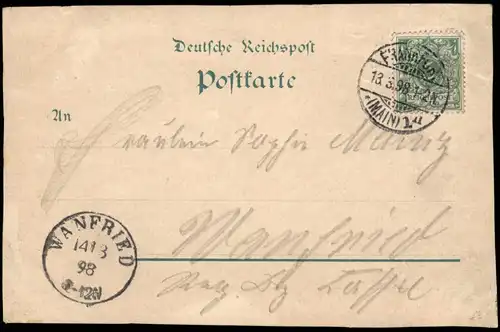 Deutsche Reichspost
Postkarte
FRANKFURT
13.3.98.
(MAIN) 1.
An
Fräulein Sophie
Wanfried
Reg. Bz Cassel
WANFRIED
14/3
98
8-12N